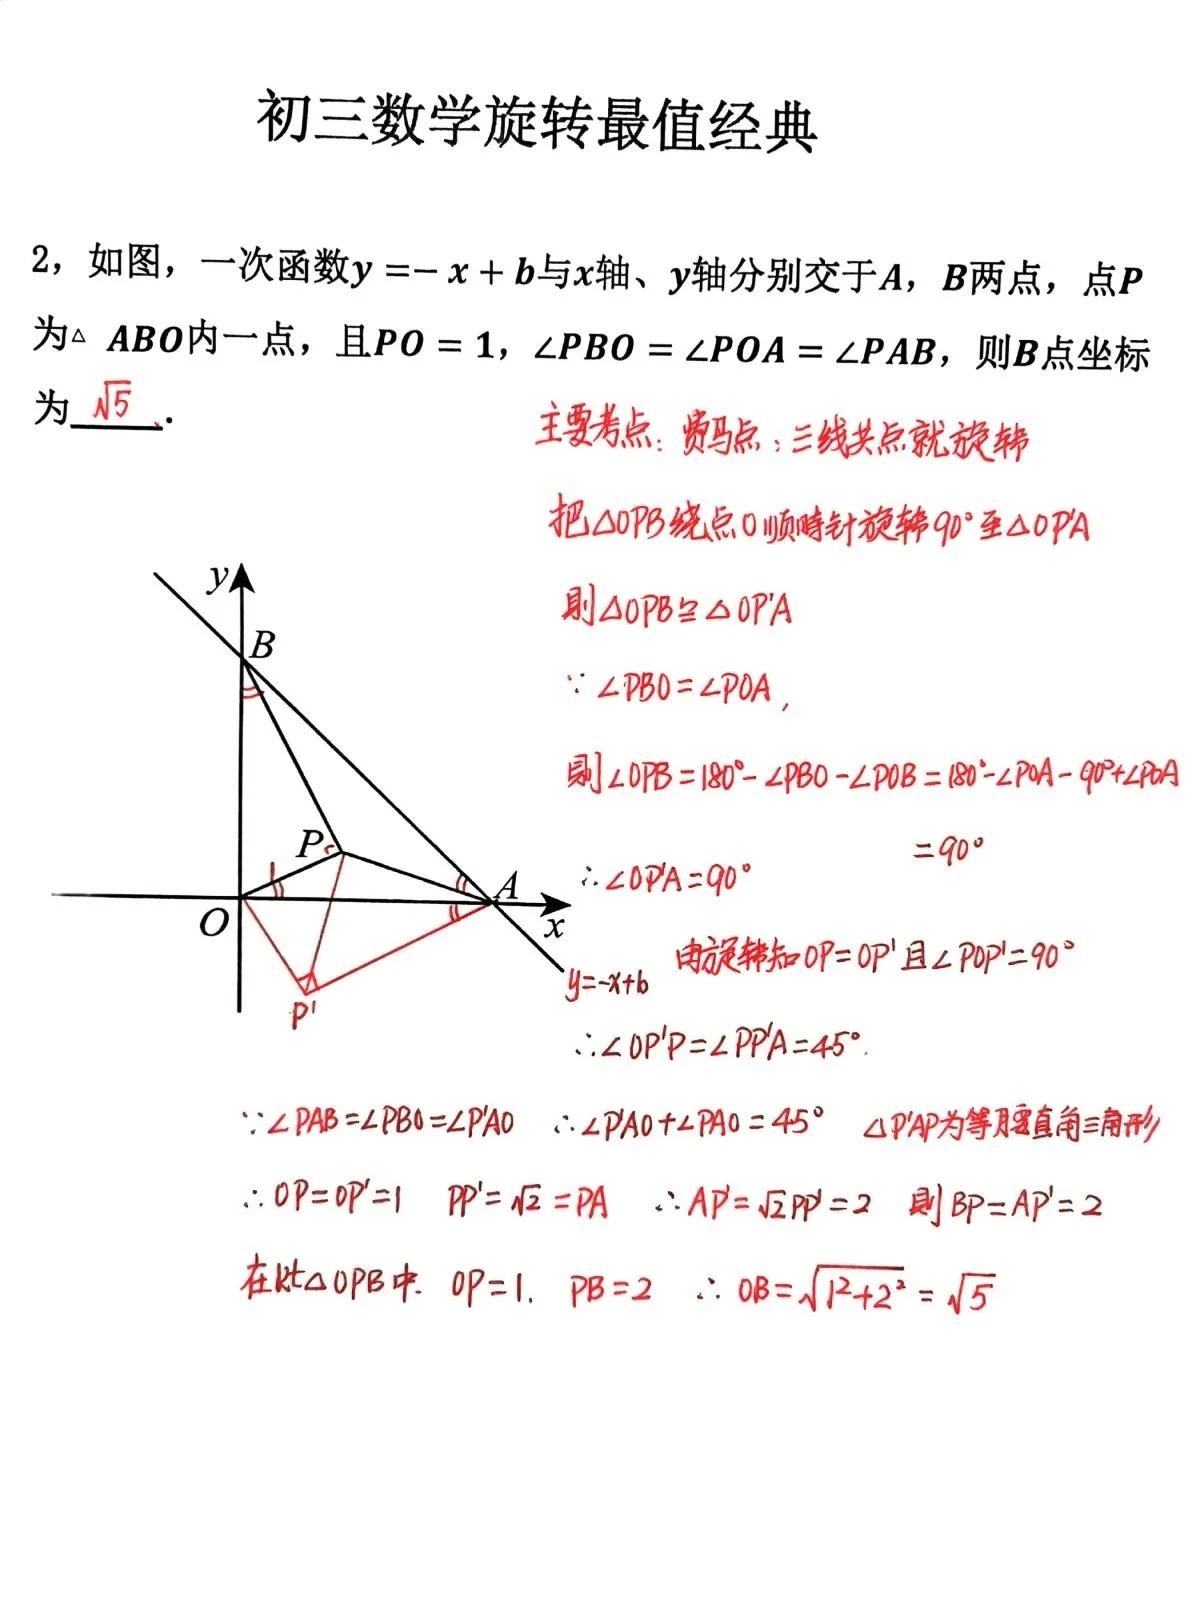 初三数学旋转最值经典
2，如图，一次函数y =− x + b与x轴、y轴分别交于A，B两点，点P
为△ ABO内一点，且PO = 1，∠PBO = ∠POA = ∠PAB，则B点坐标
为 √5 .
主要考点：费马点：三线共点就旋转
把△OPB绕点O顺時针旋转90°至△OP'A
则△OPB≌△OP'A
∵∠PBO=∠POA,
则∠OPB=180°-∠PBO-∠POB=180°-∠POA-90°+∠POA
=90°
∴∠OP'A=90°
由旋转知OP=OP'且∠POP'=90°
∴∠OP'P=∠PP'A=45°.
y
B
P
O
A
x
y=-x+b
P'
∵∠PAB=∠PBO=∠P'AO ∴∠P'AO+∠PAO=45° △P'AP为等腰直角三角形
∴OP=OP'=1 PP'=√2=PA ∴AP'=√2PP'=2 则BP=AP'=2
在Rt△OPB中. OP=1. PB=2 ∴OB=√1²+2²=√5